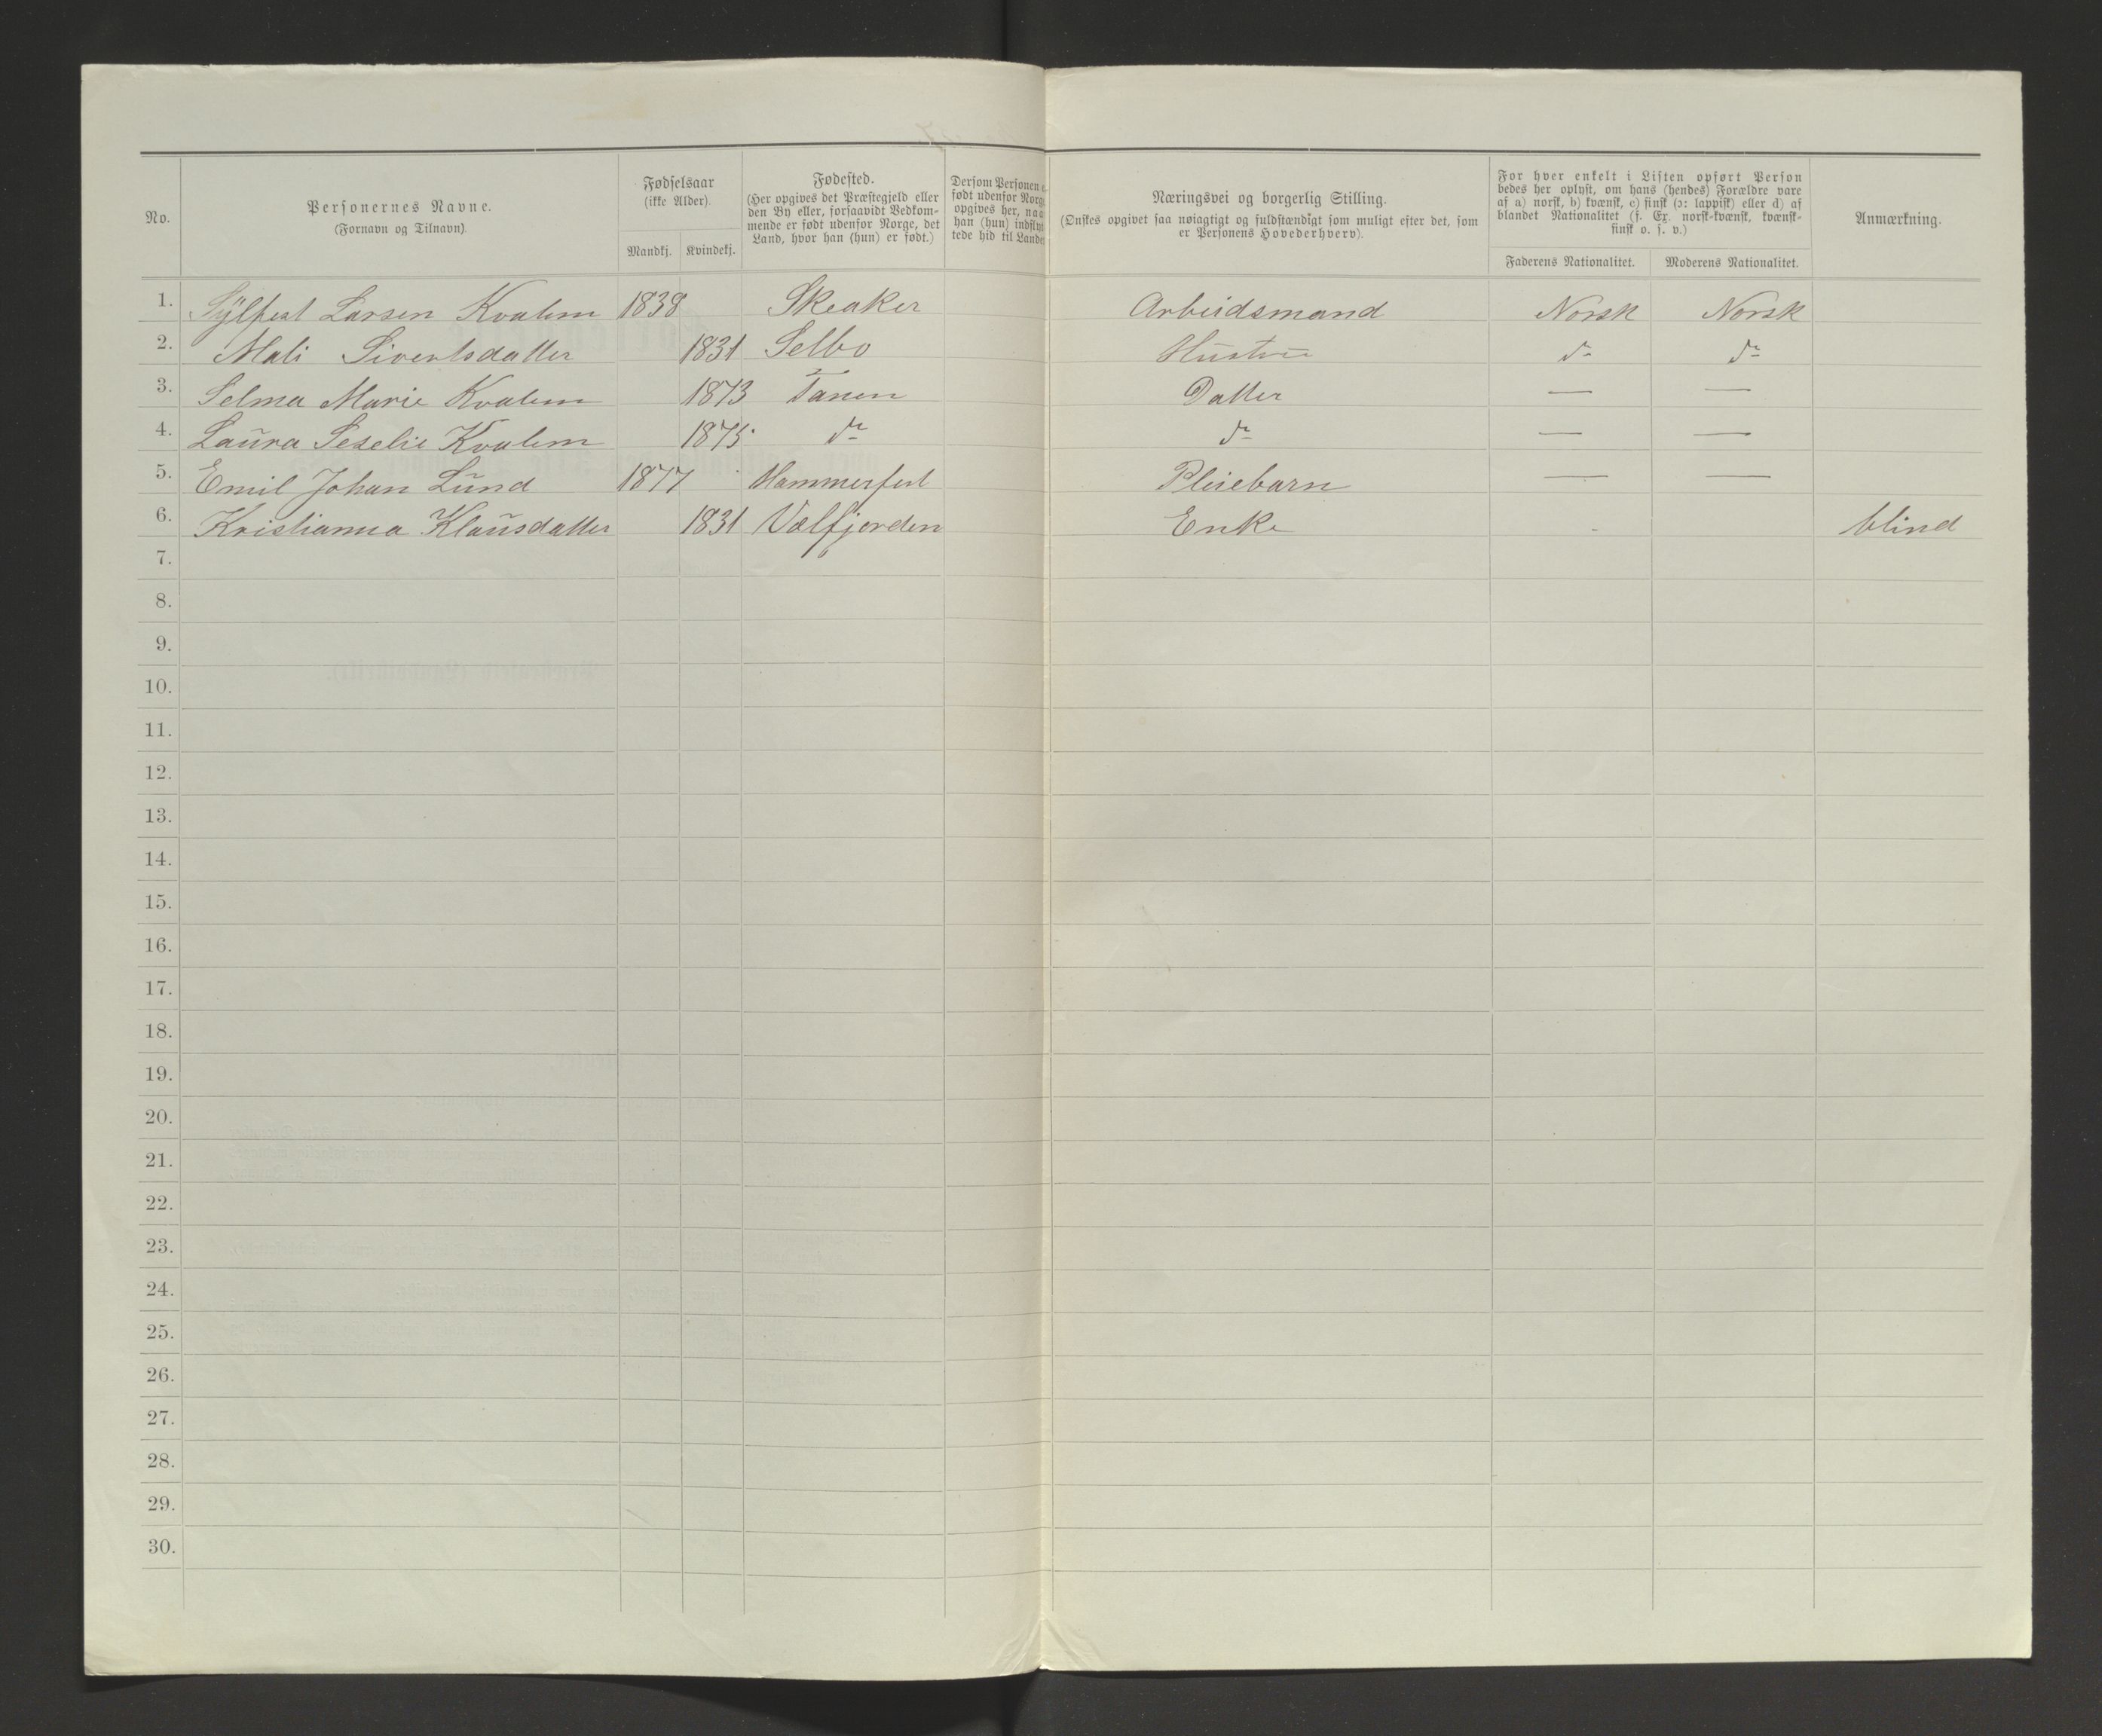 No.
Personernes Navne.
(Fornavn og Tilnavn).
Fødselsaar
(ikke Alder).
Mandkj. Kvindekj.
Fødested.
(Her opgives det Præstegjeld eller
den By eller, forsaavidt Vedkom-
mende er født udenfor Norge, det
Land, hvor han (hun) er født.)
Dersom Personen
født udenfor Norge
opgives her, naa
han (hun) indflyt
tede hid til Landet
Næringsvei og borgerlig Stilling.
(Ønskes opgivet saa nøiagtigt og fuldstændigt som muligt efter det, som
er Personens Hovederhverv).
For hver enkelt i Listen opført Person
bedes her oplyst, om hans (hendes) Forældre vare
af a) norsk, b) kvænsk, c) finsk (ɔ: lappisk) eller d) af
blandet Nationalitet (f. Ex. norsk-kvænsk, kvænsk-
finsk o. s. v.)
Faderens Nationalitet. Moderens Nationalitet.
Anmærkning.
1. Sylfest Larsen Kvalem 1838 Skeaker Arbeidsmand Norsk Norsk
2. Mali Sivertsdatter 1831 Selbo Hustru do do
3. Selma Marie Kvalem 1873 Tanen Datter — —
4. Laura Seselie Kvalem 1875 do do — —
5. Emil Johan Lund 1877 Hammerfest Pleiebarn — —
6. Kristianna Klausdatter 1831 Vælfjorden Enke - — blind
7.
8.
9.
10.
11.
12.
13.
14.
15.
16.
17.
18.
19.
20.
21.
22.
23.
24.
25.
26.
27.
28.
29.
30.